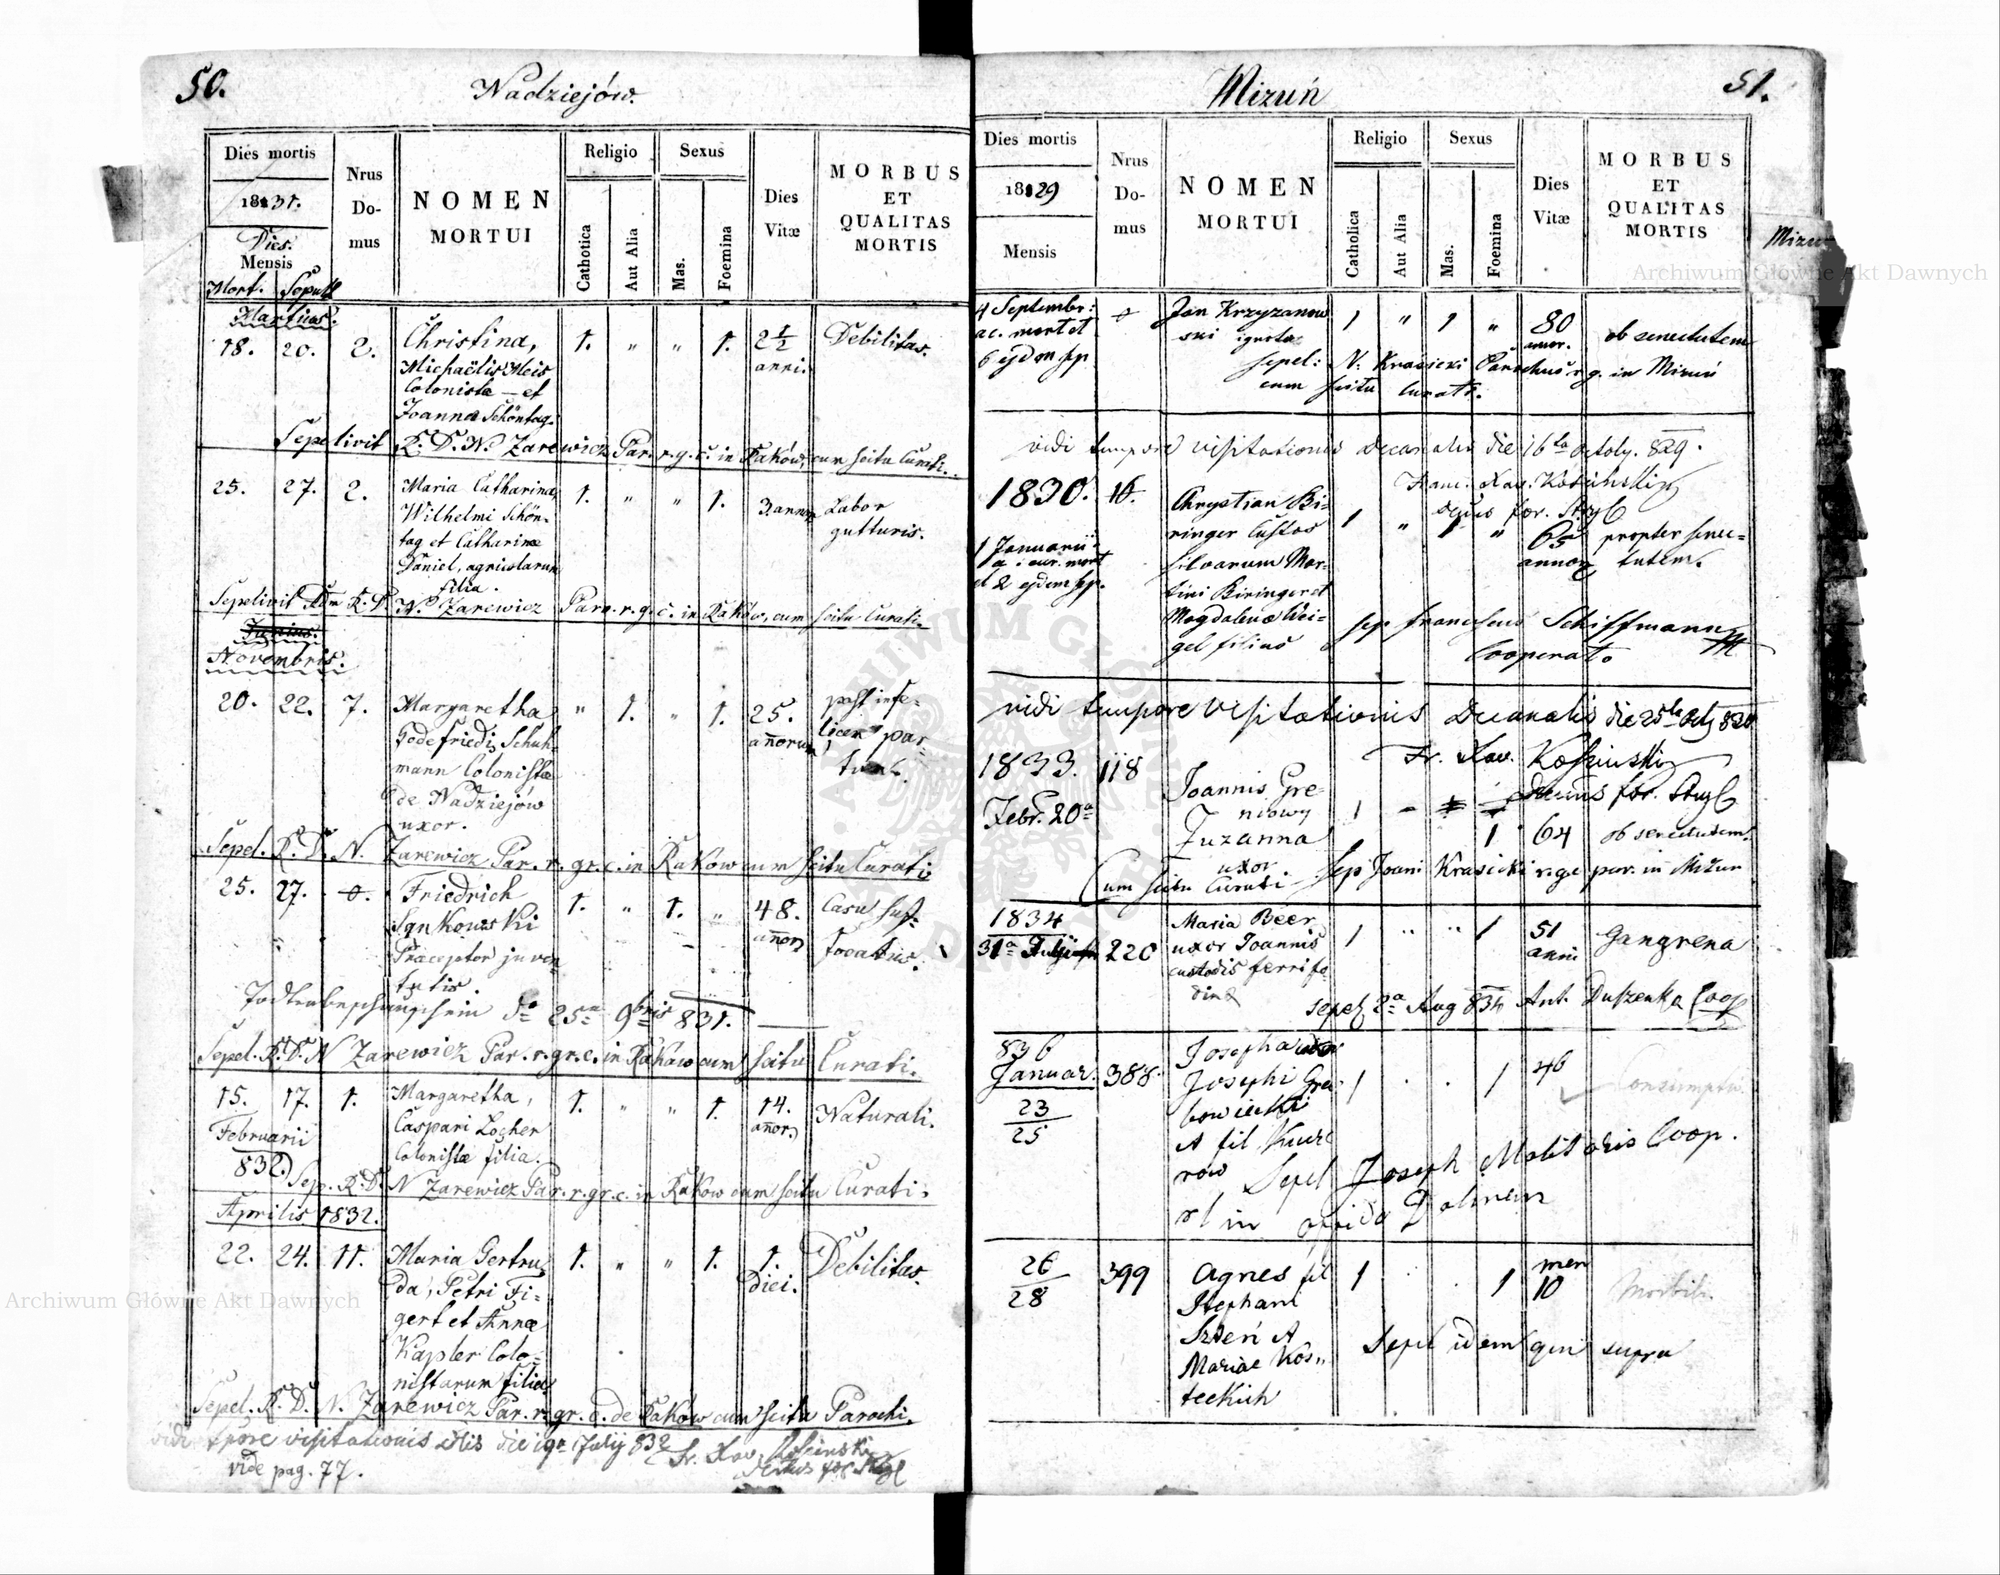 50.
Nadziejów.
Dies mortis
1831.
Dies
Mensis
Mort. Sepult
Nrus
Do-
mus
NOMEN
MORTUI
Religio
Catholica
Aut Alia
Sexus
Mas.
Foemina
Dies
Vitæ
MORBUS
ET
QUALITAS
MORTIS
Martius.
18. 20. 2. Christina, 1. „ „ 1. 2 1/2 Debilitas.
anni.
Michaëlis Meis
Coloniste — et
Joanna Schöntag.
Sepelivit R. D. N. Zarewicz Par. r. g. c. in Raków, cum scitu Curati.
25. 27. 2. Maria Catharina 1. „ „ 1. 3 annor Labor
Wilhelmi Schön- gutturis.
tag et Catharinæ
Daniel, agricolarum
filia.
Sepelivit R. D. N. Zarewicz Par. r. g. c. in Raków, cum scitu Curati.
Junius.
Novembris.
20. 22. 7. Margaretha „ 1. „ 1. 25. post infe-
Godefriedi Schuh- añorum licem par-
mann Colonistæ tum.
de Nadziejów
uxor.
Sepel. R. D. N. Zarewicz Par. r. gr. c. in Rakow cum scitu Curati
25. 27. o. Friedrich 1. „ 1. „ 48. Casu suf-
Sankowski añor focatus.
Præceptor juven-
tutis.
Todtenbeschauschein do 25a 9bris 831.
Sepel. R. D. N Zarewicz Par. r. gr. c. in Rakow cum scitu Curati.
15. 17. 1. Margaretha, 1. „ „ 1. 14. Naturali.
Februarii Caspari Locher añor
832. Colonistæ filia.
Sep. R. D. N Zarewicz Par. r. gr. c. in Rakow cum scitu Curati.
Aprilis 1832.
22. 24. 11. Maria Gertru- 1. „ „ 1. 1. Debilitas.
da, Petri Fi- diei.
gert et Annæ
Kapler Colo-
nistarum filia
Sepel. R. D. N. Zarewicz Par. r. gr. c. de Rakow cum scitu Parochi.
vidi tpore visitationis die July 832 Fr. Xav.
vide pag. 77.
51.
Mizuń
Dies mortis
1829
Mensis
Nrus
Do-
mus
NOMEN
MORTUI
Religio
Catholica
Aut Alia
Sexus
Mas.
Foemina
Dies
Vitæ
MORBUS
ET
QUALITAS
MORTIS
Mizu
4 Septembr: o Jan Krzyzanow 1 „ 1 „ 80 ob senectutem
a c. mort et ski annor.
6 ejdem sp sepel: N: Krasicki Parochus r g. in Mizuń
cum scitu Curati.
vidi tempore visitationis decanalis die 16ta octob. 829.
Franc. Xav. Kosinski
1830. 16. Chrystian Bi-
ringer Custos 1 „ 1 „ 65 propter senec-
1 Januarii silvarum Mar- annor tutem.
a: cur. mort tini Biringer et
et 2 ejdem sp. Magdalena Wei- sep franciscus Schiffmann
gel filius Cooperato
vidi tempore visitationis Decanalis die 25ta 830
Fr. Xav. Kosinski
1833. 118 Joannis Gre-
Febr. 20a niowy
Zuzanna 1 – 1 64 ob senectutem
uxor
Cum scitu Curati – sep Joani Krasicki r. ge par. in Mizun
1834 Maria Beer
31a Julii 220 uxor Joannis 1 „ „ 1 51 Gangrena
custodis ferrifo anni
dinæ
sepel 2a Aug 834 Ant. Duszenka Coop
836 Josepha
Januar. 388 Josephi Gra- 1 . . 1 46 Consumptio
23 bowiecki
25
Sepel Joseph Molitoris Coop.
26 399 Agnes fil 1 . . 1 men Morbili
28 Stephani 10
Mariae Kos-
teckich
Sepel idem qui supra
Archiwum Główne Akt Dawnych
Archiwum Główne Akt Dawnych